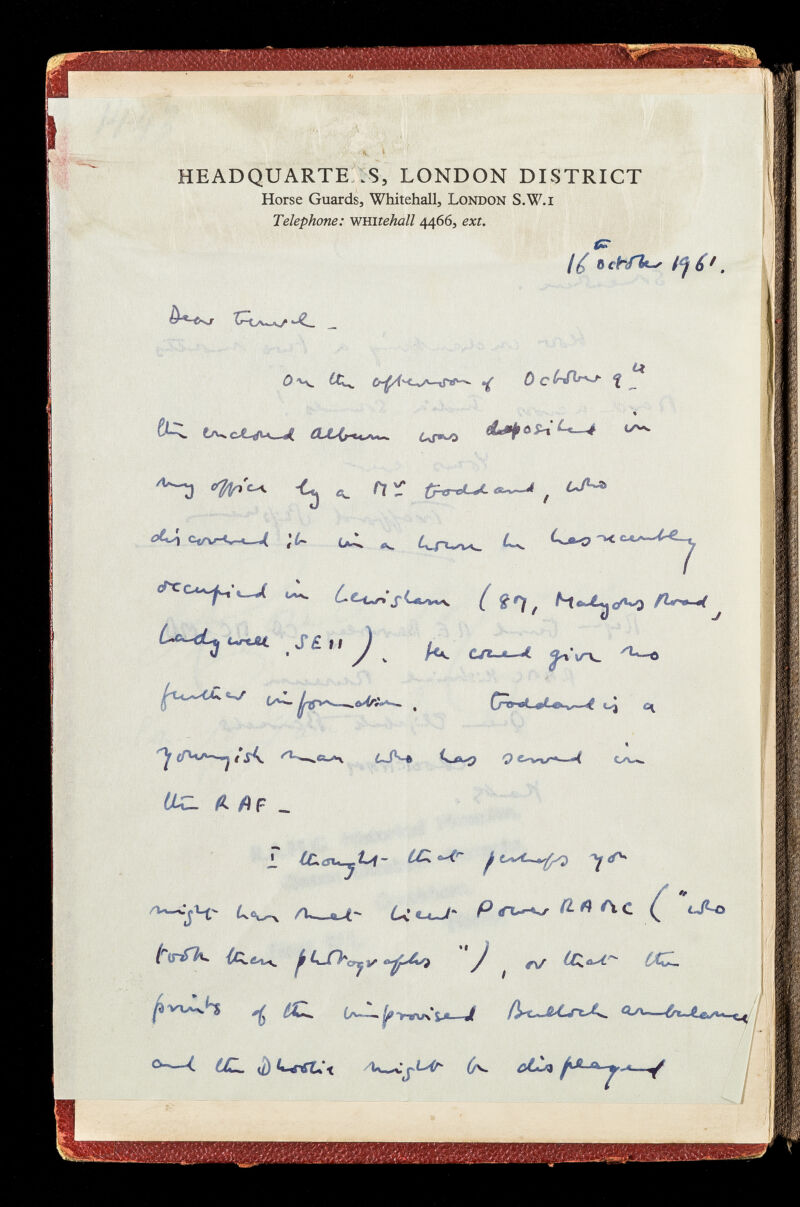 HEADQUARTE S, LONDON DISTRICT
Horse Guards, Whitehall, LONDON S.W.1
Telephone: WHItehall 4466, ext.
16th October 1961.
Dear General –
On the afternoon of October 9th
the enclosed album was deposited in
my office by a Mr Goddard, who
discovered it in a house he has recently
occupied in Lewisham (87, Malyons Road,
Ladywell, SE11). He could give no
further information. Goddard is a
youngish man who has served in
the RAF –
I thought that perhaps you
might have met Lieut Power RAMC ("who
took these photographs"), or that the
prints of the improvised Bullock ambulance
and the Dhoolie might be displayed